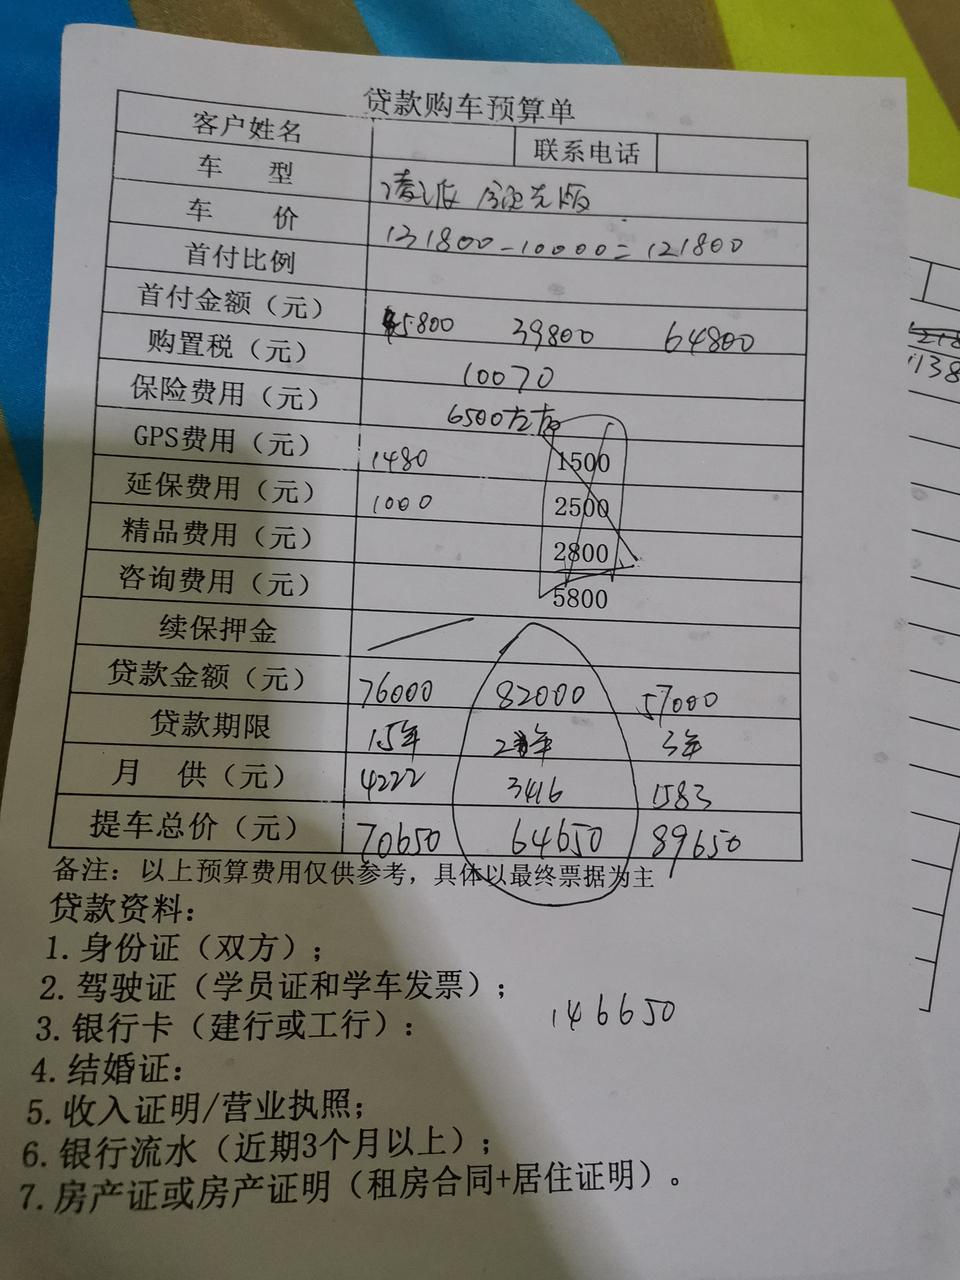 贷款购车预算单
客户姓名 联系电话
车 型 凌派 领先版
车 价 131800-10000=121800
首付比例
首付金额（元） 45800 39800 64800
购置税（元） 10070
保险费用（元） 6500左右
GPS费用（元） 1480 1500
延保费用（元） 1000 2500
精品费用（元） 2800
咨询费用（元） 5800
续保押金
贷款金额（元） 76000 82000 57000
贷款期限 15年 2年 3年
月 供（元） 4222 3416 1583
提车总价（元） 70650 64650 89650
备注：以上预算费用仅供参考，具体以最终票据为主
贷款资料：
1. 身份证（双方）；
2. 驾驶证（学员证和学车发票）；
3. 银行卡（建行或工行）：
146650
4. 结婚证：
5. 收入证明/营业执照；
6. 银行流水（近期3个月以上）；
7. 房产证或房产证明（租房合同+居住证明）。